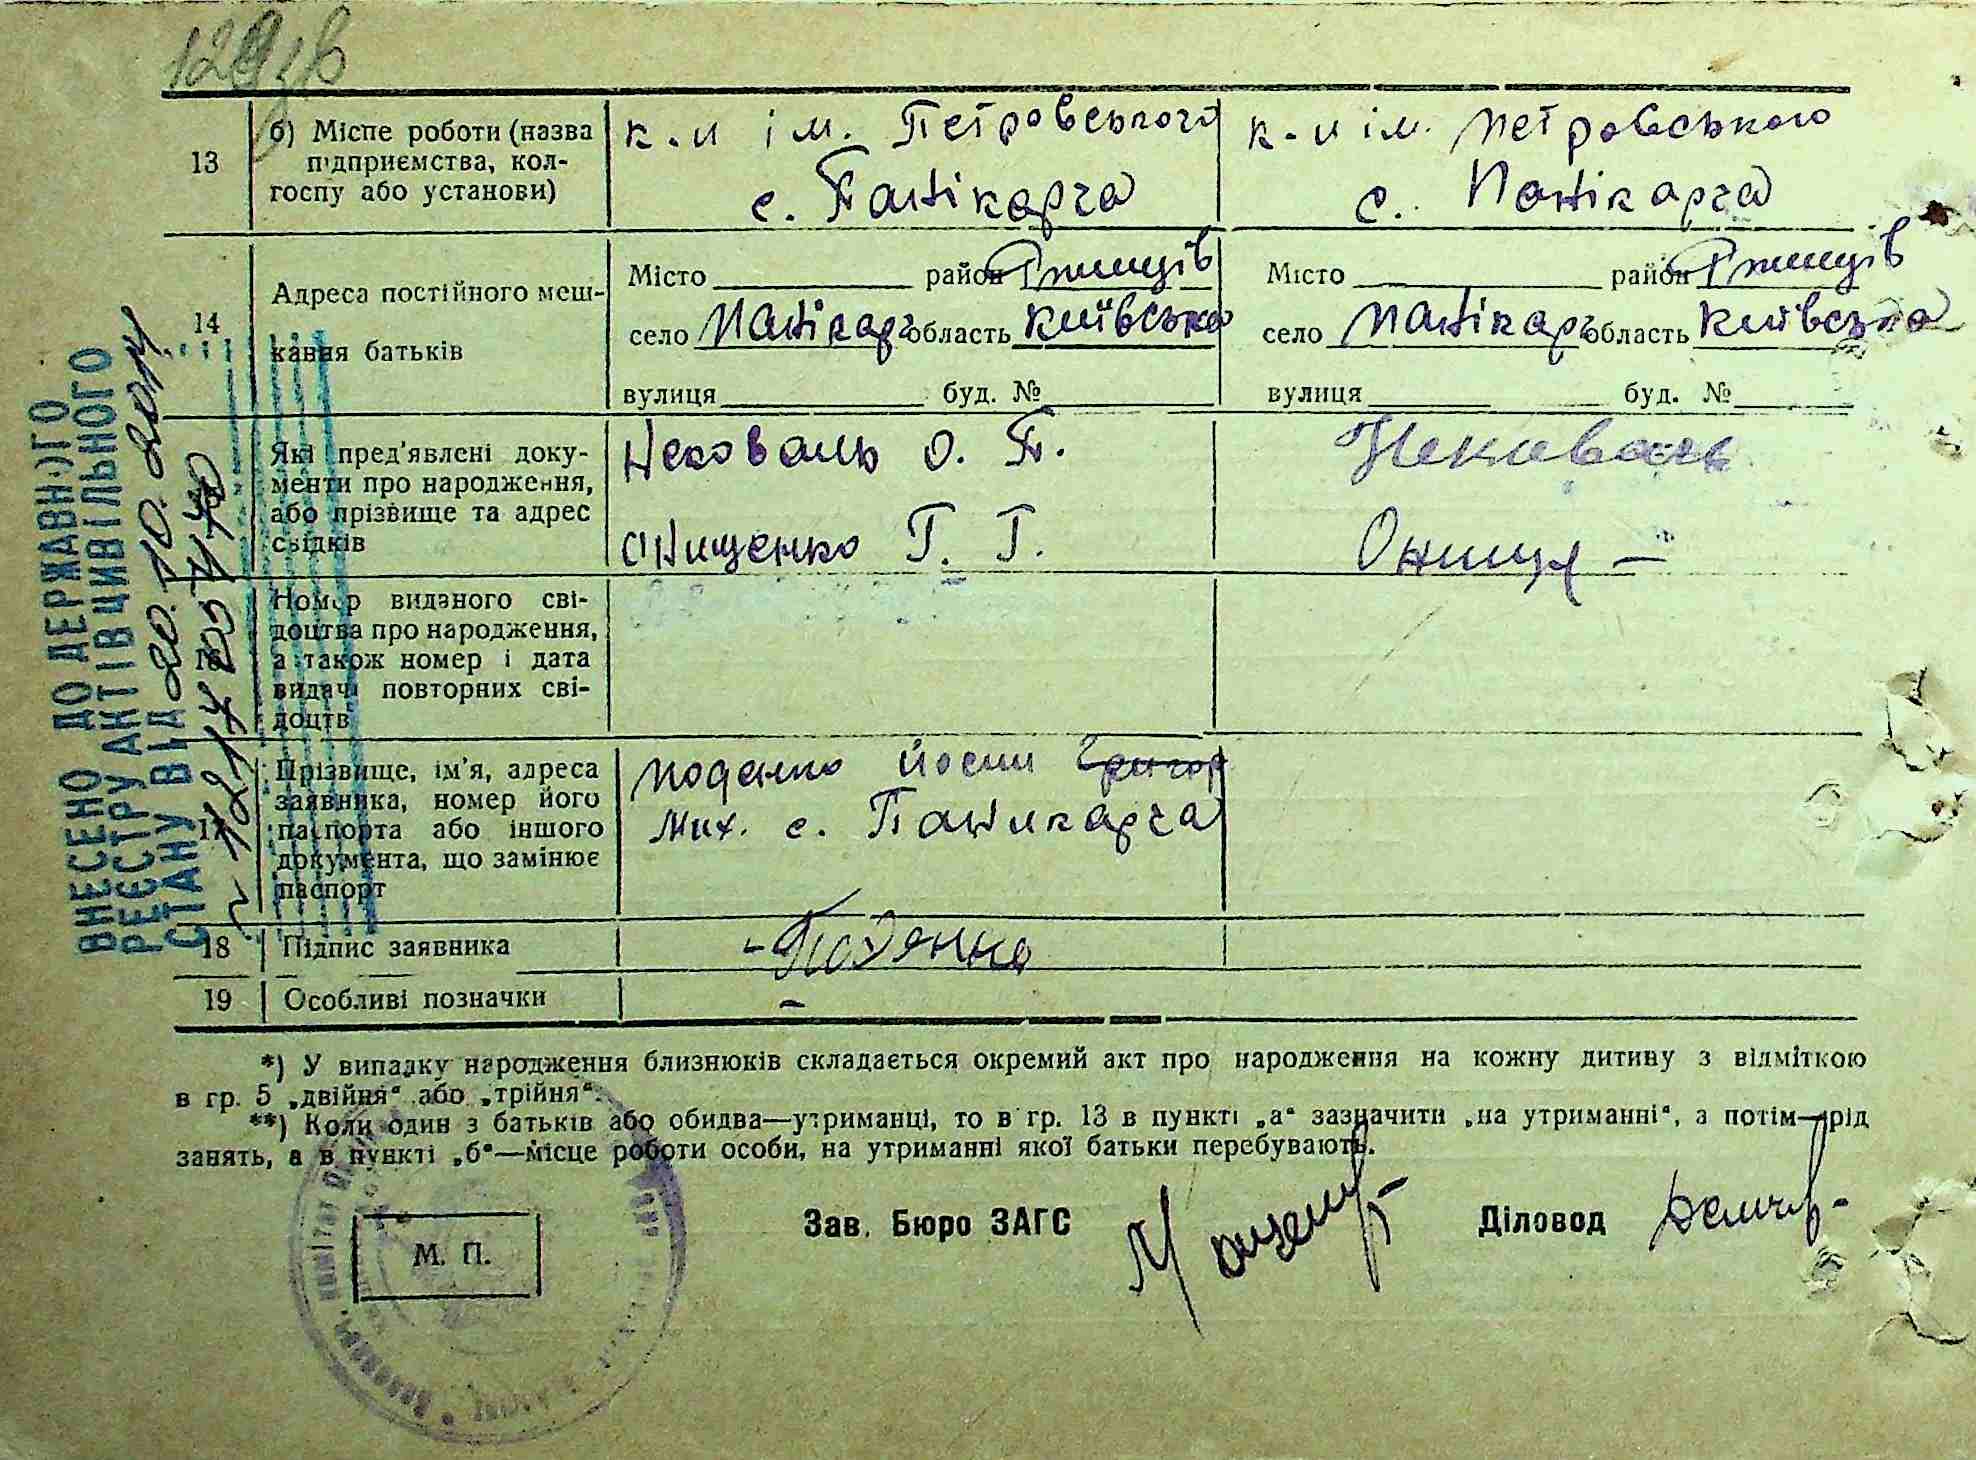 13
б) Місце роботи (назва
підприємства, кол-
госпу або установи)
к-п ім. Петровського
с. Панікарча
к-п ім. Петровського
с. Панікарча
14
Адреса постійного меш-
кання батьків
Місто район Ржищів
село Панікарч область Київська
вулиця буд. №
Місто район Ржищів
село Панікарч область Київська
вулиця буд. №
Які пред'явлені доку-
менти про народження,
або прізвище та адрес
свідків
Нековаль О. П.
Онищенко Г. Г.
Нековаль
Онище
16
Номер виданого сві-
доцтва про народження,
а також номер і дата
видачі повторних сві-
доцтв
17
Прізвище, ім'я, адреса
заявника, номер його
паспорта або іншого
документа, що замінює
паспорт
Поденко Йосип Григор
Мих. с. Паникарча
18
Підпис заявника
- Поденко
19
Особливі позначки
-
*) У випадку народження близнюків складається окремий акт про народження на кожну дитину з відміткою
в гр. 5 „двійня" або „трійня".
**) Коли один з батьків або обидва—утриманці, то в гр. 13 в пункті „а" зазначити „на утриманні", а потім—рід
занять, а в пункті „б"—місце роботи особи, на утриманні якої батьки перебувають.
М. П.
Зав. Бюро ЗАГС
Діловод
ВНЕСЕНО ДО ДЕРЖАВНОГО
РЕЄСТРУ АКТІВ ЦИВІЛЬНОГО
СТАНУ ВІД